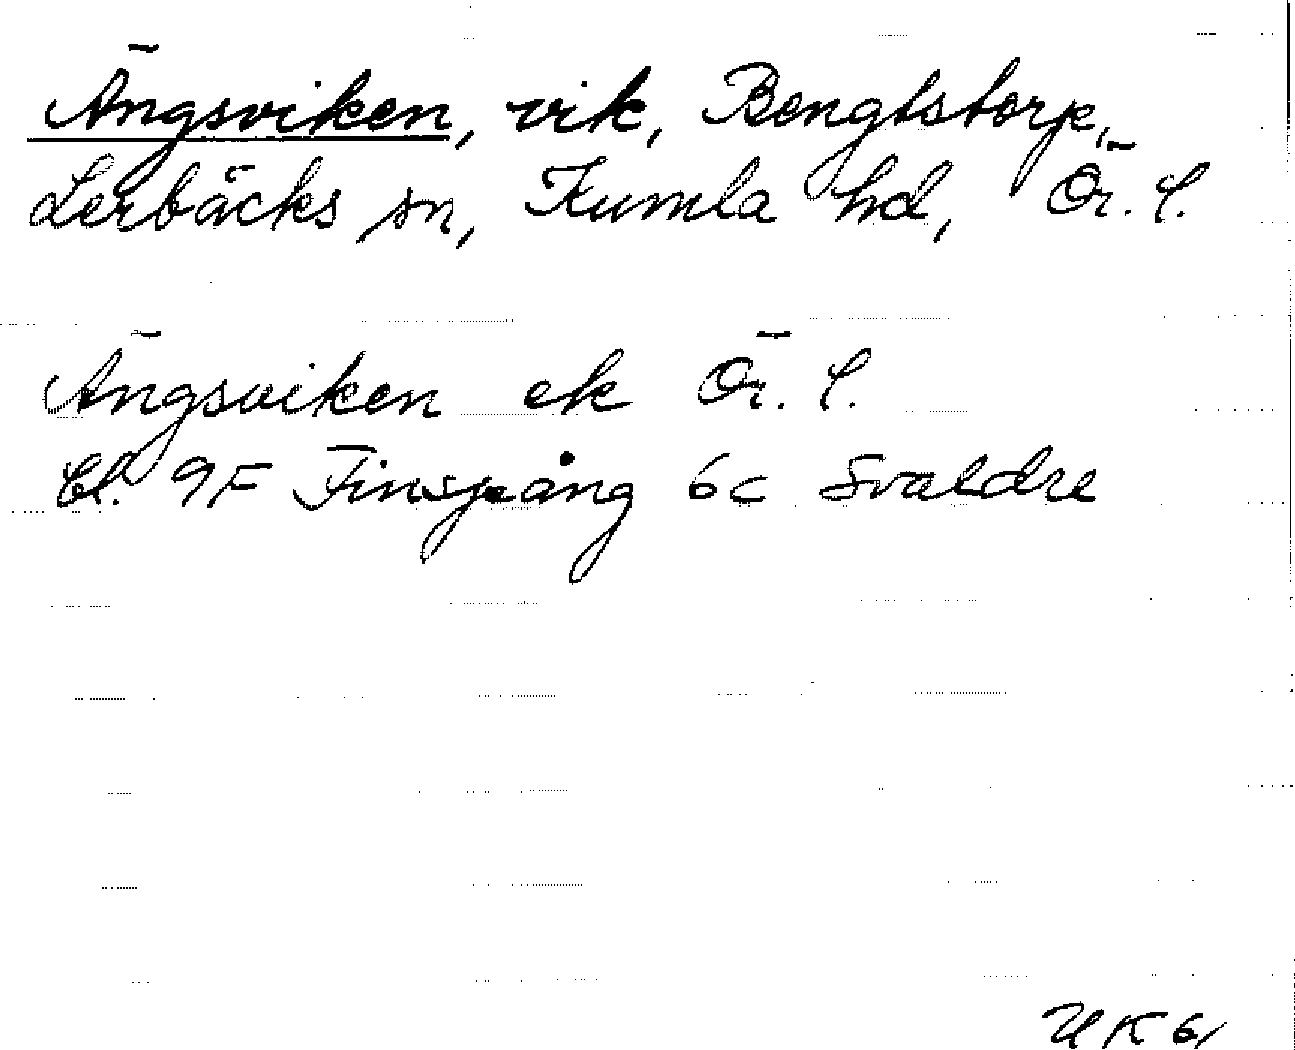 Ängsviken, vik, Bengtstorp,
Lerbäcks sn, Kumla hd, Ör. l.
Ängsviken ek Ör. l.
Bl. 9F Finspång 6c Svaldre
UK 61